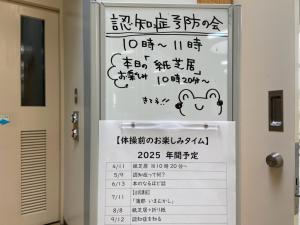 認知症予防の会
10時~11時
本日の「紙芝居」
お楽しみ 10時20分~
【体操前のお楽しみタイム】
2025 年間予定
4/11 紙芝居 ※10時20分~
5/9 認知症って何?
6/13 本のなるほど話
7/11
「蒲郡 いまむかし」
8/8 紙芝居+折り紙
9/12 認知症を知る